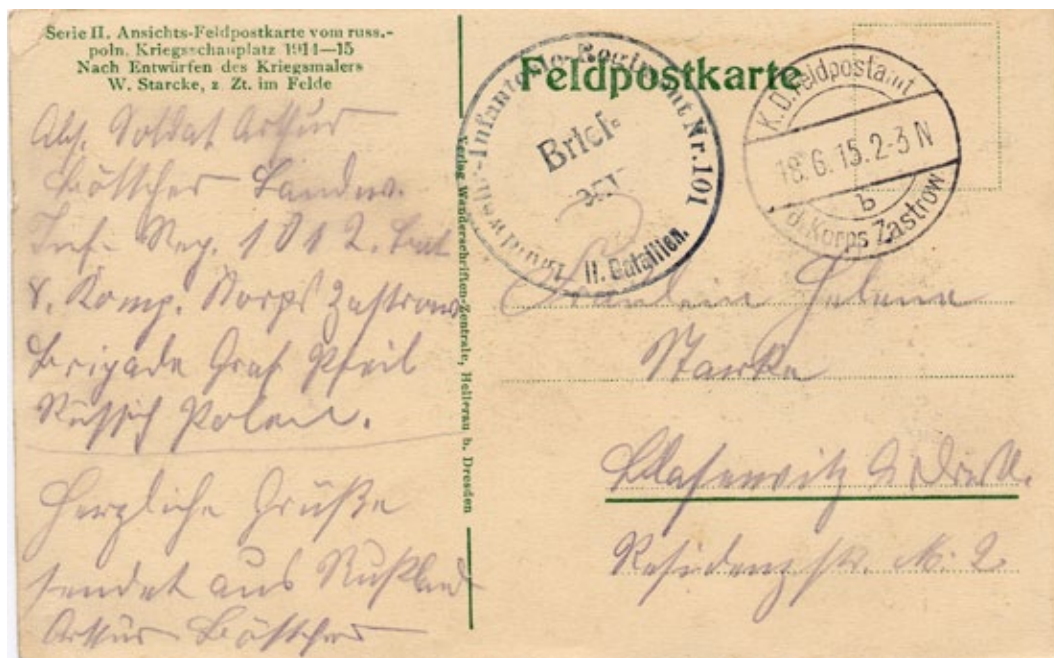 Serie II. Ansichts-Feldpostkarte vom russ.-
poln. Kriegsschauplatz 1914—15
Nach Entwürfen des Kriegsmalers
W. Starcke, z Zt. im Felde
Abs. Soldat Arthur
Böttcher Landw.
Inf. Reg. 101 2. Bat
8. Komp. Korps Zastrow
Brigade Graf Pfeil
Russisch Polen.
Herzliche Grüße
sendet aus Rußland
Arthur Böttcher
Verlag Wanderschriften-Zentrale, Hellerau b. Dresden
Feldpostkarte
Landwehr-Infanterie-Regiment Nr. 101
Brief-
II. Bataillon.
K.D. Feldpostamt
18.6.15. 2-3 N
b
d. Korps Zastrow
Fräulein Helene
Starke
Blasewitz b. Dresd.
Residenzstr. N. 2